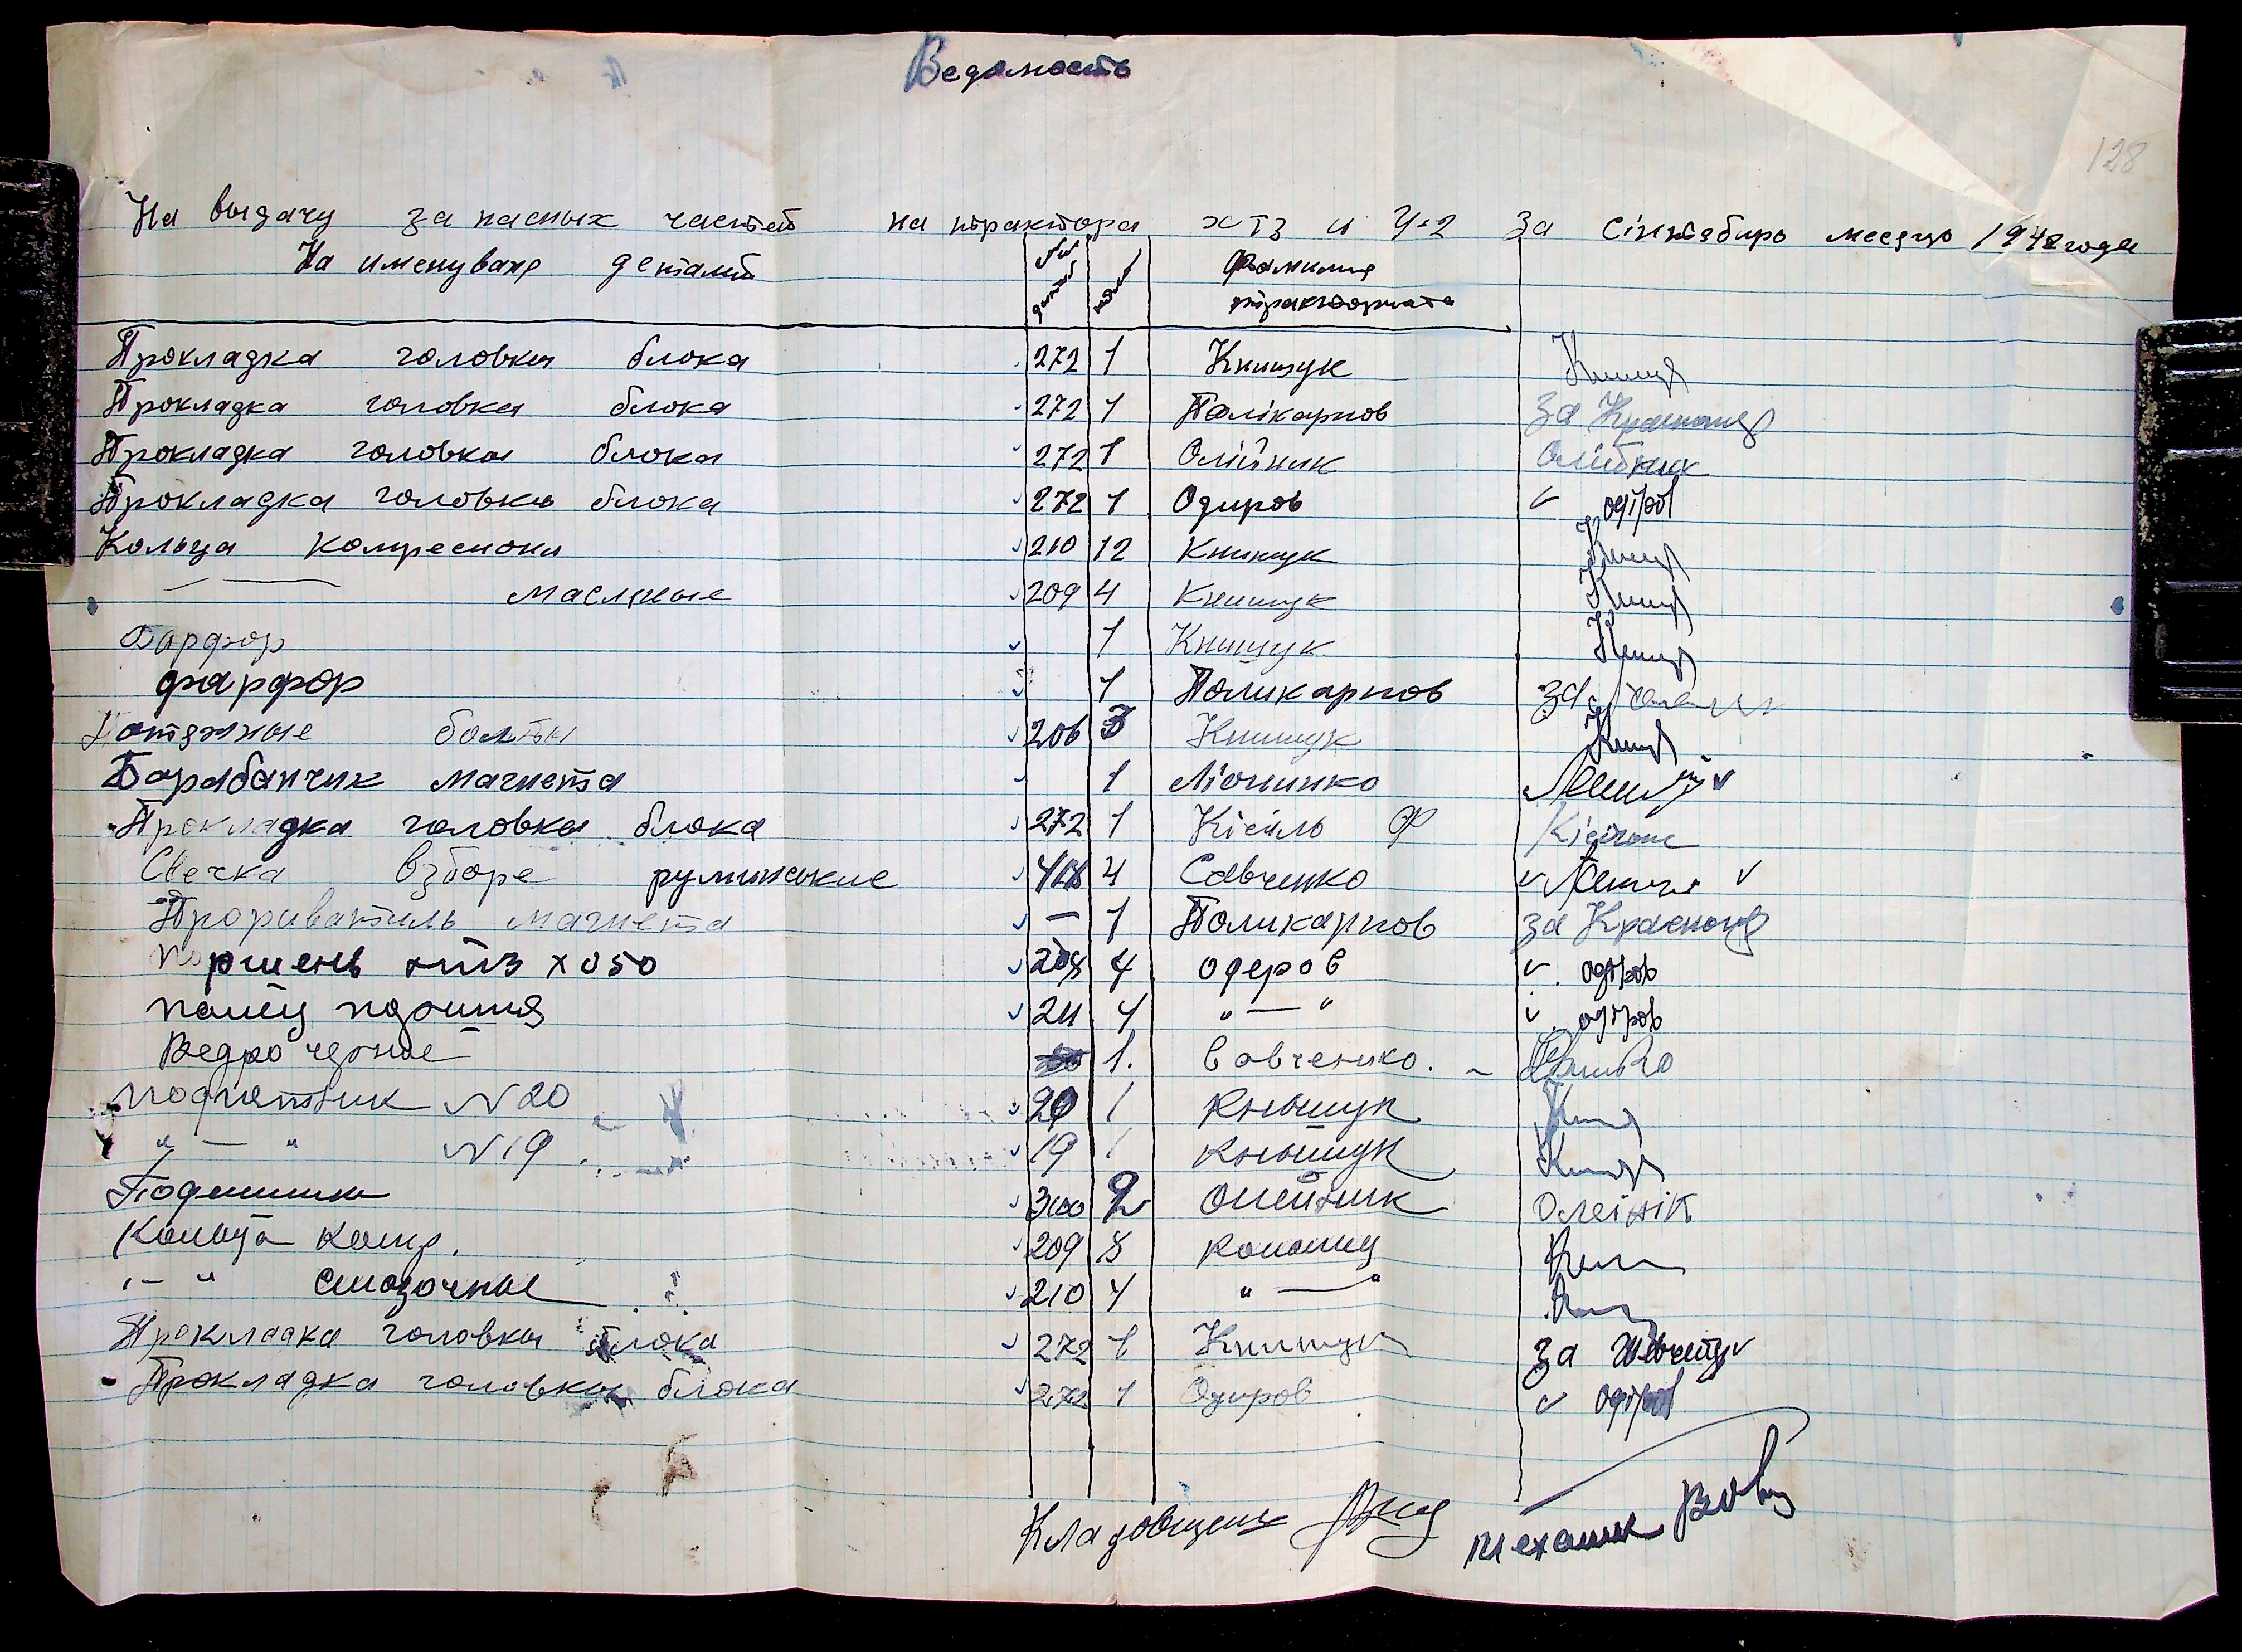 Ведомость
128
На выдачу запасных частей на трактора ХТЗ и У-2 За Сінтябирь месяцо 1948 года
На именуваня деталей
№ детал
Фамилия тракториста
Прокладка головки блока 272 1 Книшук Книщ
Прокладка головки блока 272 1 Полікарпов За Краснощ
Прокладка головки блока 272 1 Олійник Олійник
Прокладка головки блока 272 1 Одиров одіров
Кольца компресиони 210 12 Книшук Книщ
— масляные 209 4 Книшук Книщ
Фарфор 1 Книшук Книщ
фарфор 1 Поликарпов за
Потяжные болты 206 3 Книшук Книщ
Барабанчик магнета 1 Ліонинко
Прокладка головки блока 272 1 Кісиль Ф
Свечка взборе румынские 4 Савченко
Прориватиль магнета — 1 Поликарпов за Краснощ
Поршень хтз х 050 4 одеров одіров
палец поршня 211 4 "—" одіров
Ведро черное 1. Савченко.
подпятник N 20 20 1 Кнышук Книщ
"—" N 19 19 1 Кнышук Книщ
Подшипник 300 2 Олейник Олеінік
Кольца комп. 209 8
"—" смазочные 210 4 "—"
Прокладка головки блока 272 1 Книшук За
Прокладка головки блока 272 1 Одиров одіров
Кладовщик
механик